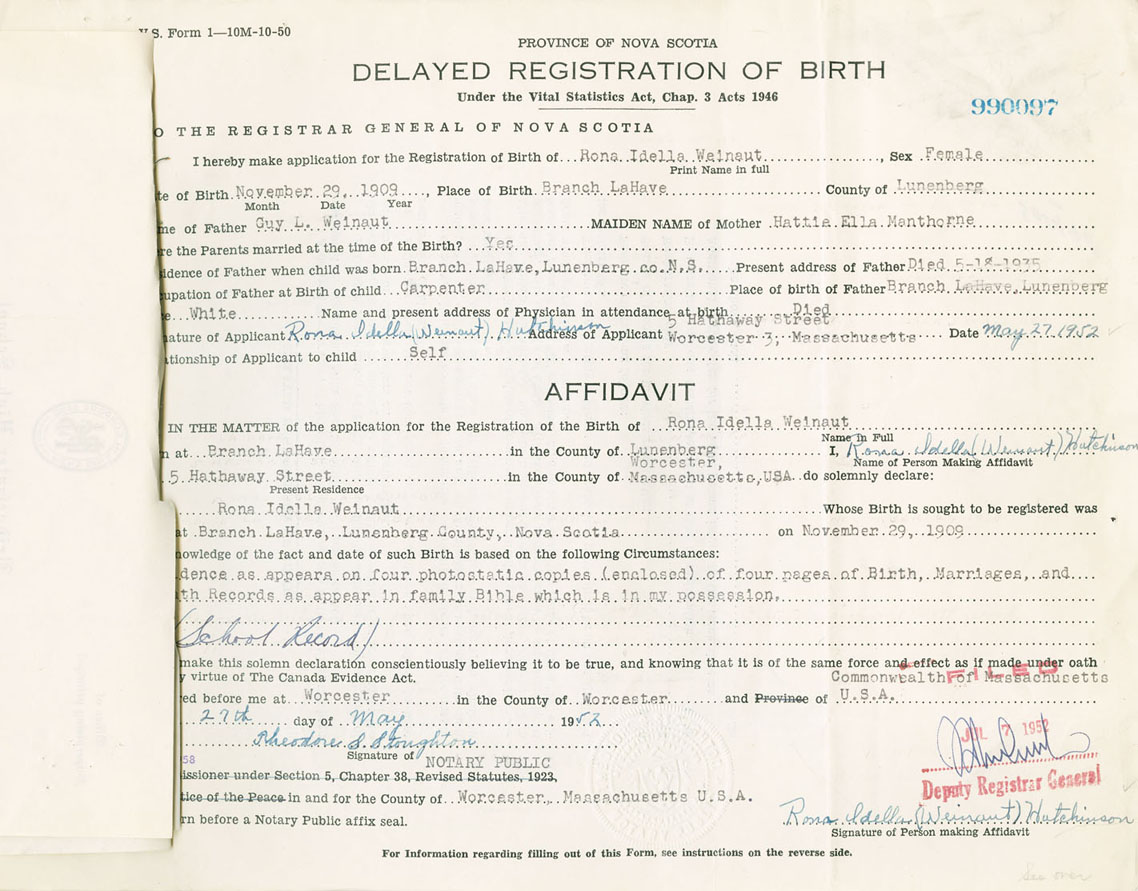 U.S. Form 1—10M-10-50
PROVINCE OF NOVA SCOTIA
DELAYED REGISTRATION OF BIRTH
Under the Vital Statistics Act, Chap. 3 Acts 1946
990097
O THE REGISTRAR GENERAL OF NOVA SCOTIA
I hereby make application for the Registration of Birth of Rona Idella Weinaut, Sex Female
Print Name in full
te of Birth November 29, 1909, Place of Birth Branch LaHave County of Lunenberg
Month Date Year
me of Father Guy L. Weinaut MAIDEN NAME of Mother Hattie Ella Manthorne
re the Parents married at the time of the Birth? Yes
idence of Father when child was born Branch LaHave, Lunenberg co. N.S. Present address of Father Died 5-18-1935
upation of Father at Birth of child Carpenter Place of birth of Father Branch LaHave, Lunenberg
e White Name and present address of Physician in attendance at birth Died
5 Hathaway Street
ature of Applicant Rona Idella (Weinaut) Hutchinson Address of Applicant Worcester 3, Massachusetts Date May 27 1952
tionship of Applicant to child Self
AFFIDAVIT
IN THE MATTER of the application for the Registration of the Birth of Rona Idella Weinaut
Name in Full
n at Branch LaHave in the County of Lunenberg I, Rona Idella (Weinaut) Hutchinson
Name of Person Making Affidavit
Worcester,
5 Hathaway Street in the County of Massachusetts, USA do solemnly declare:
Present Residence
Rona Idella Weinaut Whose Birth is sought to be registered was
at Branch LaHave, Lunenberg County, Nova Scotia on November 29, 1909
owledge of the fact and date of such Birth is based on the following Circumstances:
dence as appears on four photostatic copies (enclosed) of four pages of Birth, Marriages, and
th Records as appear in family Bible which is in my possession.
(School Record)
make this solemn declaration conscientiously believing it to be true, and knowing that it is of the same force and effect as if made under oath
y virtue of The Canada Evidence Act.
FILED
Commonwealth of Massachusetts
ed before me at Worcester in the County of Worcester and Province of U.S.A.
27th day of May 1952
JUL 7 1952
Theodore S. Stoughton
Signature of NOTARY PUBLIC
58
issioner under Section 5, Chapter 38, Revised Statutes, 1923,
Deputy Registrar General
tice of the Peace in and for the County of Worcester, Massachusetts U.S.A.
rn before a Notary Public affix seal.
Rona Idella (Weinaut) Hutchinson
Signature of Person making Affidavit
For Information regarding filling out of this Form, see instructions on the reverse side.
See over